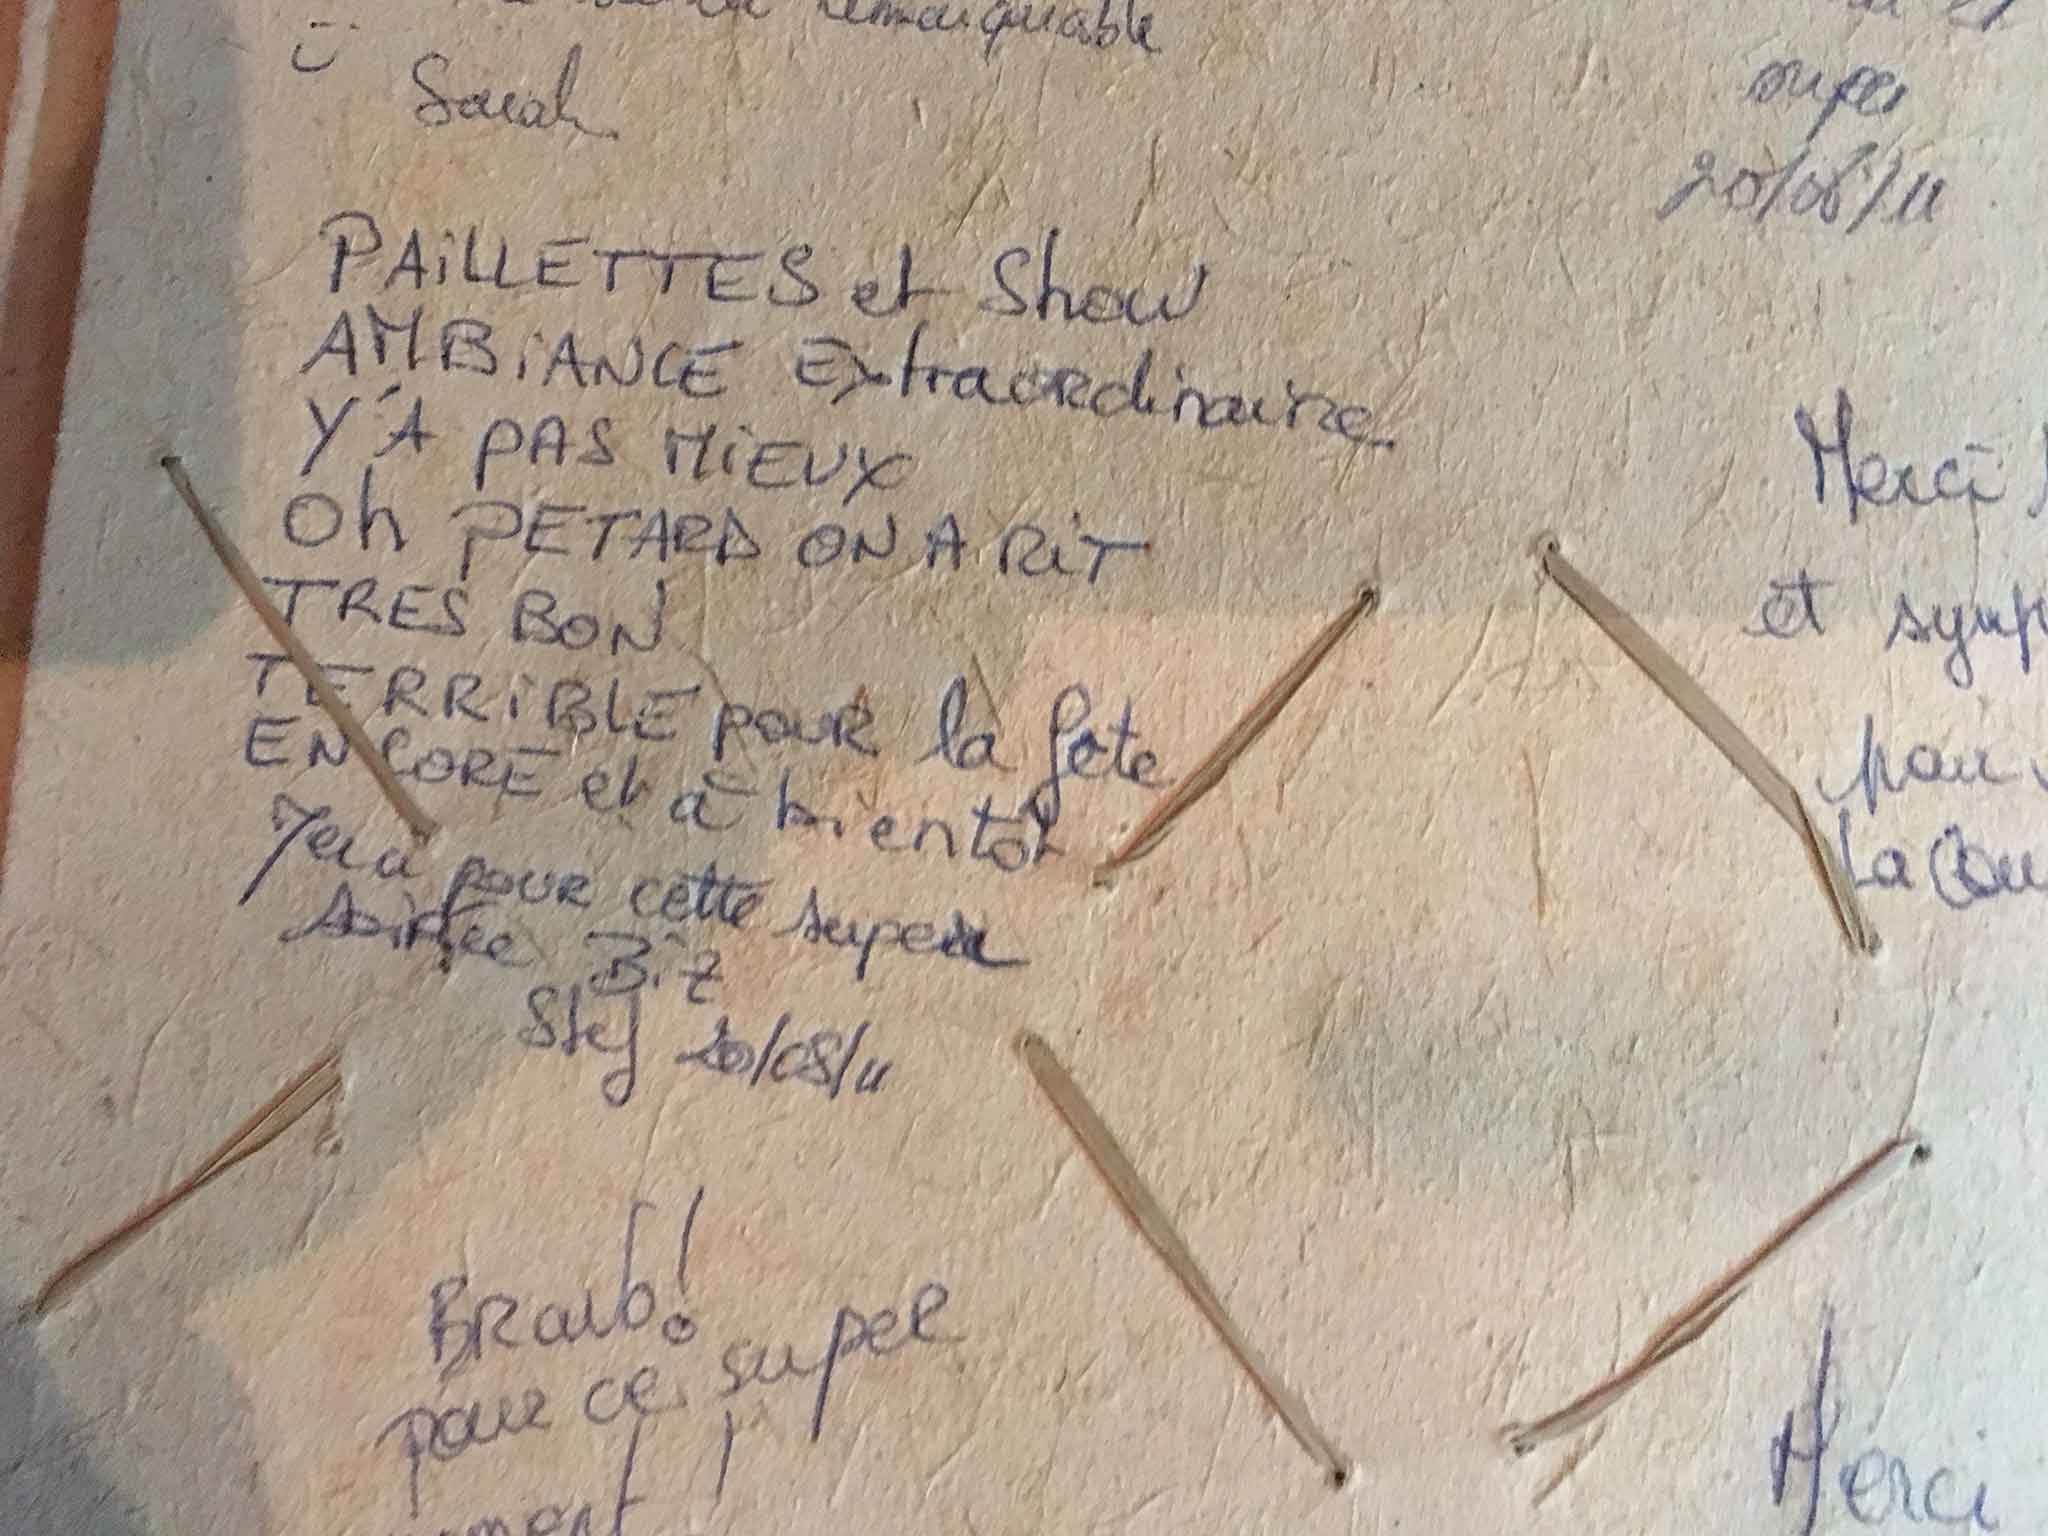 remarquable
Sarah
super
20/08/11
PAiLLETTES et Show
AMBiANCE Extraordinaire
Y'A PAS MiEUX
Oh PETARD ON A RiT
TRES BON
TERRiBLE pour la fete
ENCORE et à bientôt
pour cette super
soirée Biz
Stef 20/08/11
Merci
et symp
pour
La Cou
BRavo!
pour ce super
ment !
Merci